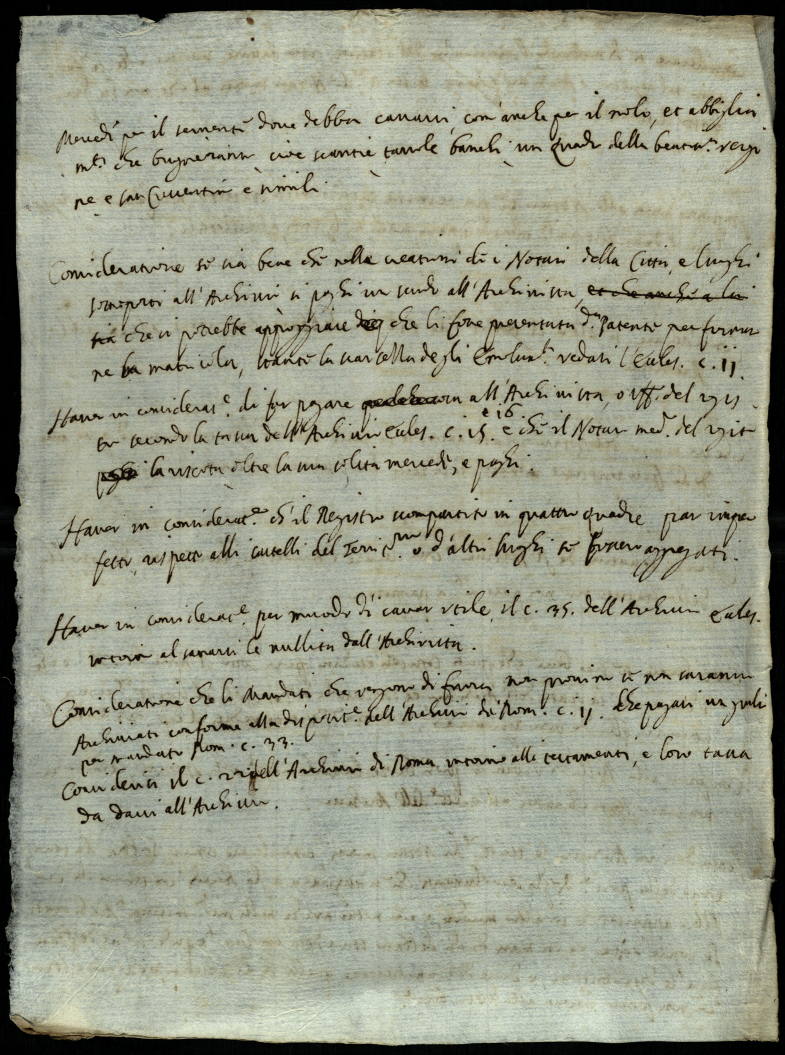 Mercede per il servente dove debba cavarsi, com'anche per il nolo, et abbiglia
mti che bisogneranno cioè scantie tavole banchi un Quadro della beatma vergi
ne e san e simili.
Consideratione se sia bene che nella creatione de i Notari della Città, e luoghi
sottoposti all'Archivio si paghi un scudo all'Archivista, et che anche a lui
che si potrebbe appoggiare che li fosse presentata da Patente per formar
ne la matricola, stante la scarsella degli Emolumti vedasi l'Eccles. c. 11
Haver in considerate di far pagare all'Archivista, o uff. del regis
tro secondo la tassa dell'Archivio Eccles. c. 15. e 16 e che il Notaro med. del regito
la riscota oltre la sua solita mercede, e paghi.
Haver in considerate ch'il Registro scompartito in quattro quadre par imper
fetto, rispetto alli castelli del Territrio o d'altri luoghi se fossero aggregati.
Haver in considerate per modo di cavar utile, il c. 35. dell'Archivio Eccles.
intorno al sanarsi le nullità dall'Archivista.
Consideratione che li Mandati che vengono di fuora non provino se non saranno
Archiviati conforme alla disposite dell'Archivio di Rom. c. 11. che pagasi un giuli
per mandato Rom. c. 33.
Considerisi il c. dell'Archivio di Roma intorno alli testamenti, e loro tassa
da darsi all'Archivio.